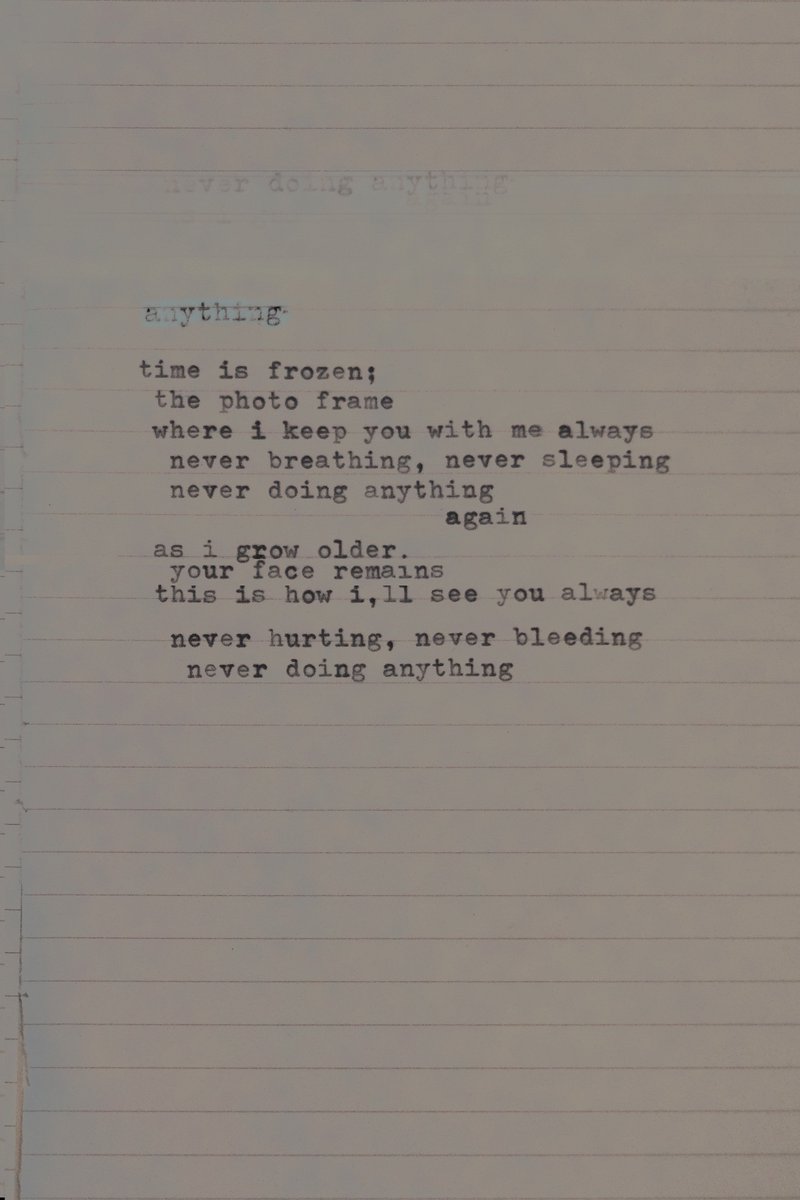 never doing anything
again
anything
time is frozen;
the photo frame
where i keep you with me always
never breathing, never sleeping
never doing anything
again
as i grow older.
your face remains
this is how i,ll see you always
never hurting, never bleeding
never doing anything